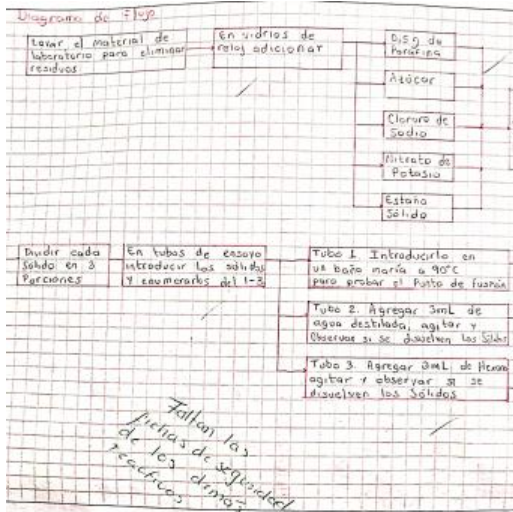 Diagrama de Flujo
Lavar el material de
laboratorio para eliminar
residuos
En vidrios de
reloj adicionar
0,5 g de
Parafina
Azúcar
Cloruro de
Sodio
Nitrato de
Potasio
Estaño
Sólido
Dividir cada
Sólido en 3
Porciones
En tubos de ensayo
introducir los sólidos
y enumerarlos del 1-3
Tubo 1. Introducirlo en
un baño maría a 90°C
para probar el Punto de fusión
Tubo 2. Agregar 3mL de
agua destilada, agitar y
Observar si se disuelven los Sólidos
Tubo 3. Agregar 3mL de Hexano
agitar y observar si se
disuelven los Sólidos
Faltan las
fichas de seguridad
de los demás
reactivos